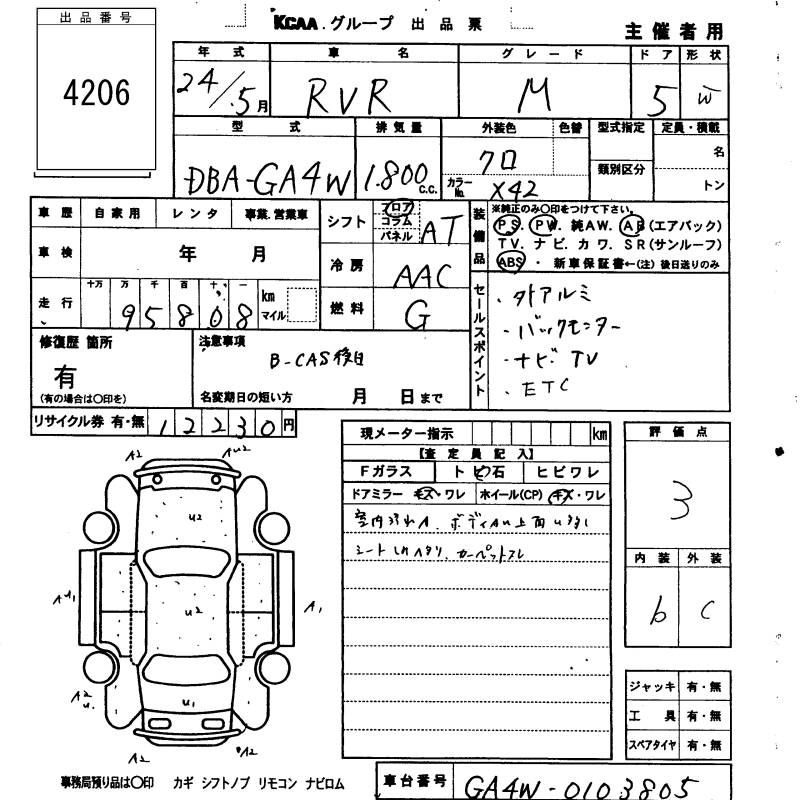 出品番号
4206
KCAA グループ 出品票
主催者用
年式 車名 グレード ドア 形状
24/5月 RVR M 5 W
型式 排気量 外装色 色替 型式指定 定員・積載
DBA-GA4W 1.800 C.C. クロ 類別区分 名
カラーNo. X42 トン
車歴 自家用 レンタ 事業.営業車
シフト フロア コラム パネル AT
装備品 ※純正のみ〇印をつけて下さい。
PS. PW. 純AW. AB (エアバック)
TV. ナビ. カワ. SR (サンルーフ)
ABS ・ 新車保証書←(注) 後日送りのみ
車検 年 月
冷房 AAC
走行 十万 万 千 百 十 一
95808 km マイル
燃料 G
セールスポイント
・外アルミ
・バックモニター
・ナビ TV
・ETC
修復歴 箇所
有
(有の場合は〇印を)
注意事項
B-CAS後日
名変期日の短い方 月 日まで
リサイクル券 有・無 12230円
現メーター指示 km
【査定員記入】
Fガラス トビ石 ヒビワレ
ドアミラー キズ・ワレ ホイール(CP) キズ・ワレ
シート
評価点
3
内装 外装
b C
A2 AU2
U2
AU1 U2 A1
A2 U1
A2 A2
ジャッキ 有・無
工具 有・無
スペアタイヤ 有・無
事務局預り品は〇印 カギ シフトノブ リモコン ナビロム
車台番号 GA4W-0103805